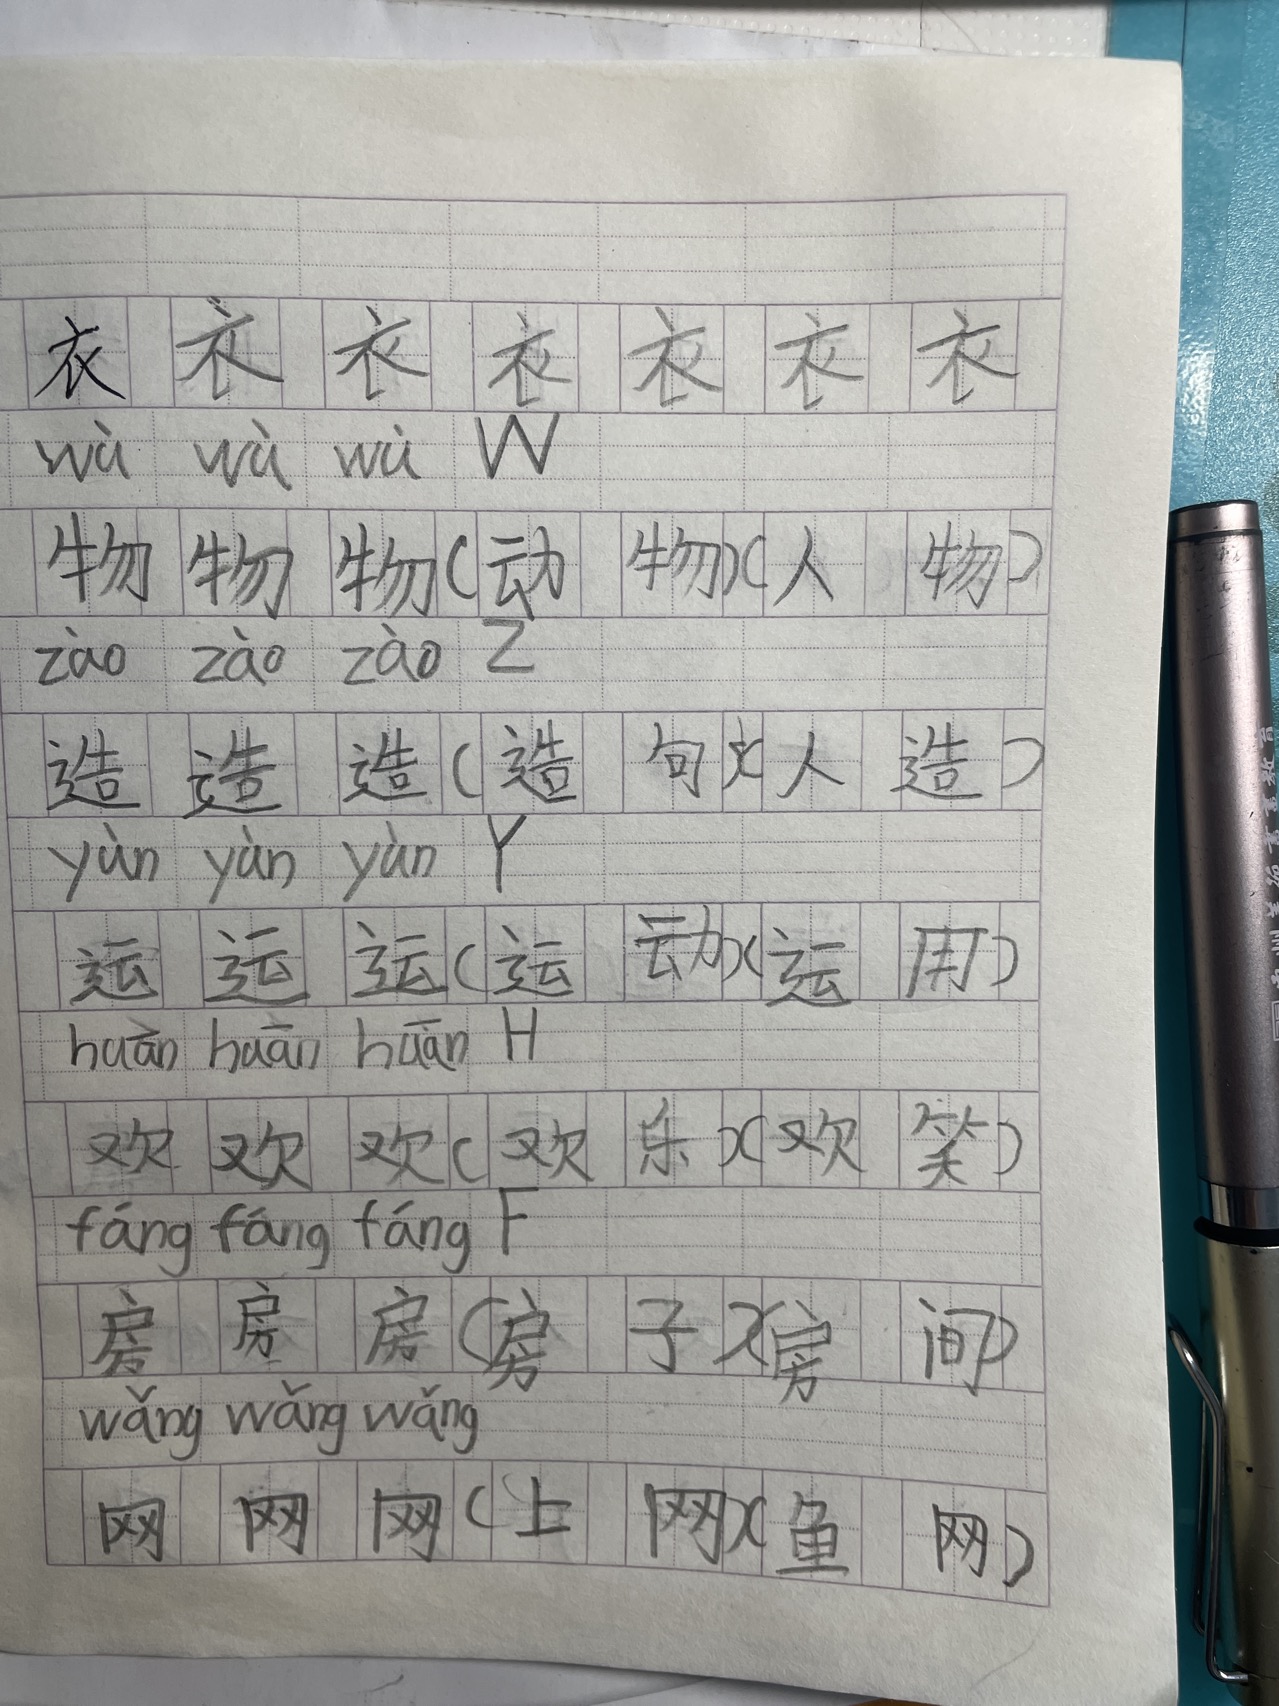 衣 衣 衣 衣 衣 衣 衣
wù wù wù W
物 物 物(动 物)(人 物)
zào zào zào Z
造 造 造(造 句)(人 造)
yùn yùn yùn Y
运 运 运(运 动)(运 用)
huān huān huān H
欢 欢 欢(欢 乐)(欢 笑)
fáng fáng fáng F
房 房 房(房 子)(房 间)
wǎng wǎng wǎng
网 网 网(上 网)(鱼 网)